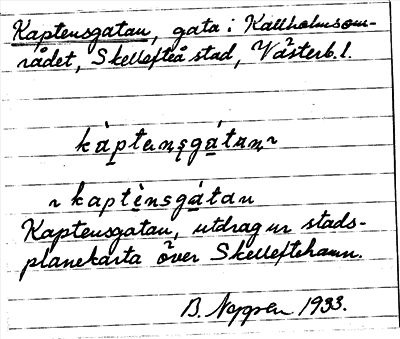 Kaptensgatan, gata i Kallholmsom-
rådet, Skellefteå stad, Västerb. l.
kàptɛnsgátan ~
~ kaptènsgátan
Kaptensgatan, utdrag ur stads-
planekarta över Skelleftehamn.
B. 1933.